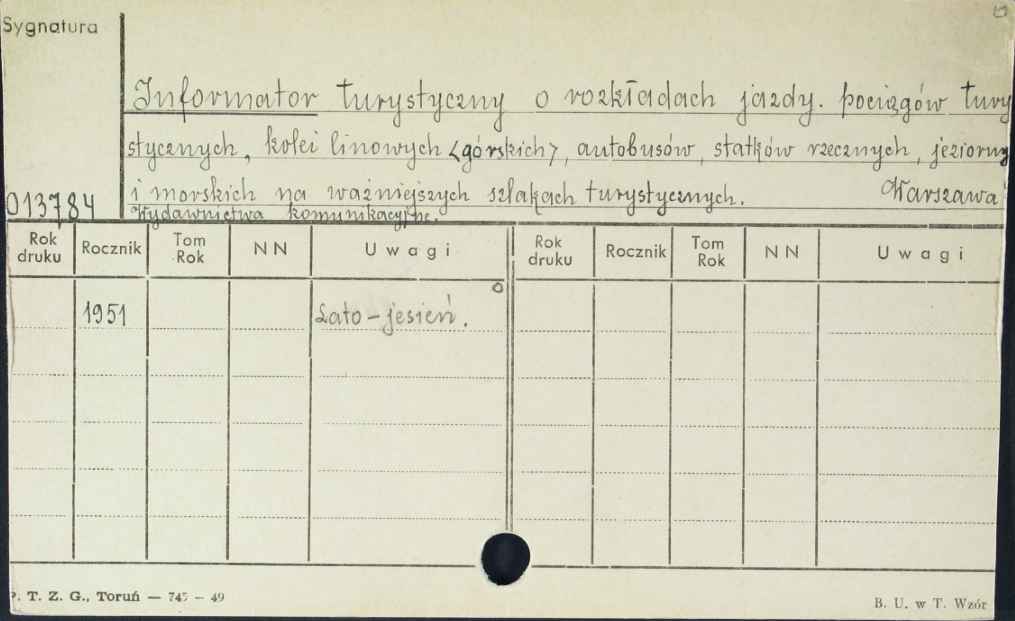 Sygnatura
Informator turystyczny o rozkładach jazdy. pociągów tury
stycznych, kolei linowych <górskich>, autobusów, statków rzecznych, jeziorny
i morskich na ważniejszych szlakach turystycznych. Warszawa
013784 Wydawnictwa komunikacyjne.
Rok druku Rocznik Tom Rok NN Uwagi Rok druku Rocznik Tom Rok NN Uwagi
1951 Lato - jesień.
P. T. Z. G., Toruń — 745 - 49 B. U. w T. Wzór